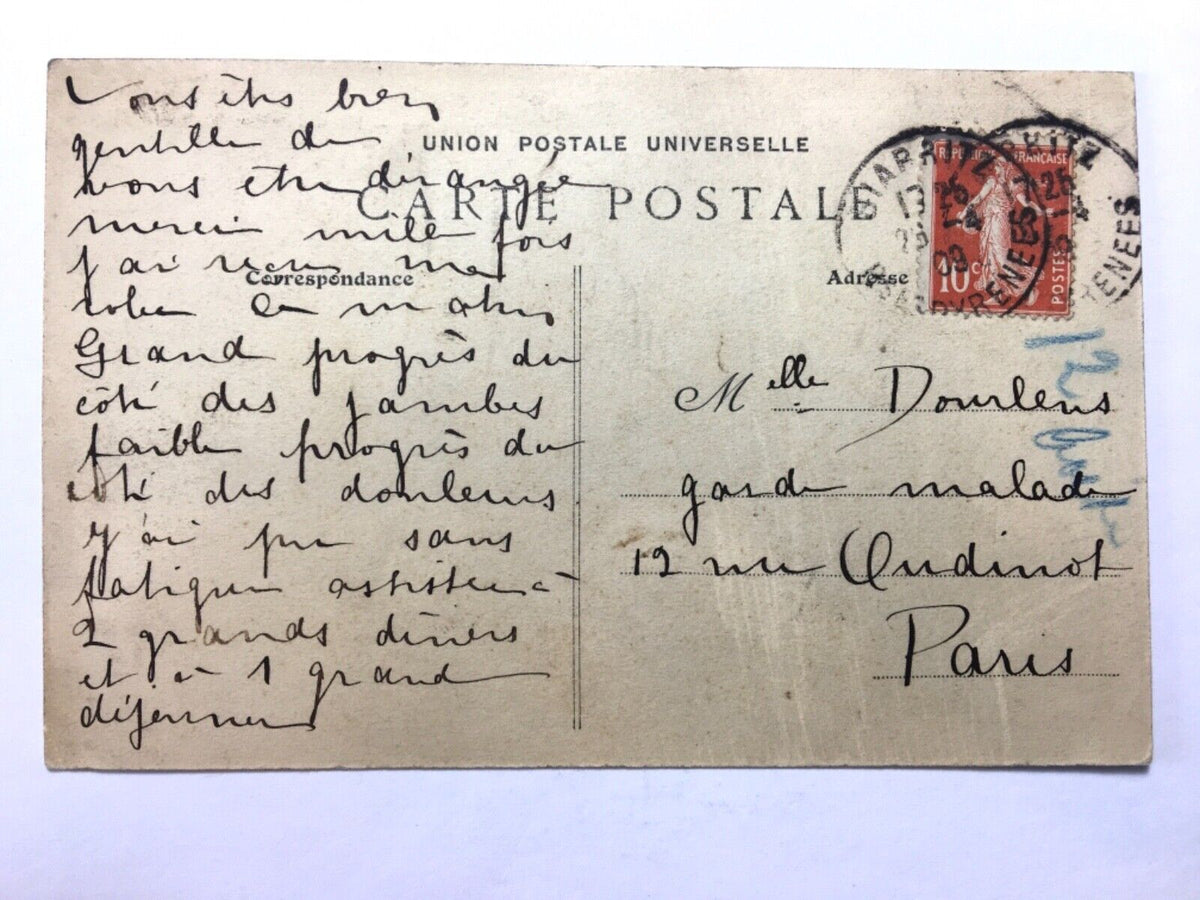 Vous êtes bien
gentille de
vous être dérangée
merci mille fois
j'ai reçu ma
robe ce matin
Grand progrès du
côté des jambes
faible progrès du
côté des douleurs
j'ai pu sans
fatigue assister à
2 grands dîners
et à 1 grand
déjeuner
UNION POSTALE UNIVERSELLE
CARTE POSTALE
Correspondance
Adresse
REPUBLIQUE FRANÇAISE
10 c
POSTES
BIARRITZ
17 25
25 -4
09
BSES PYRENEES
17 25
PYRENEES
Melle Dourlens
garde malade
12 rue Oudinot
Paris
12